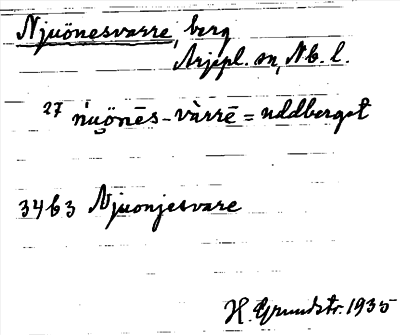 Njuönesvarre, berg
Arjepl. sn, Nb. l.
27 ńi̯uǫ̈nēs-vàrrē = uddberget
3463 Njuonjesvare
H. Grundstr. 1935